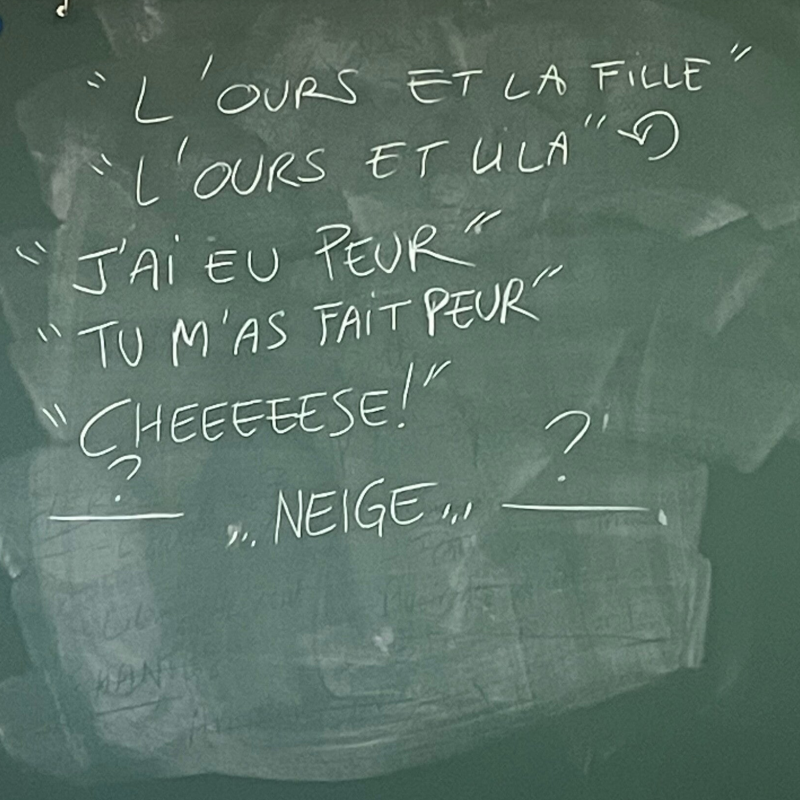 "L'OURS ET LA FILLE"
"L'OURS ET LILA"
"J'AI EU PEUR"
"TU M'AS FAIT PEUR"
"CHEEEEESE!"
? ... NEIGE ... ?